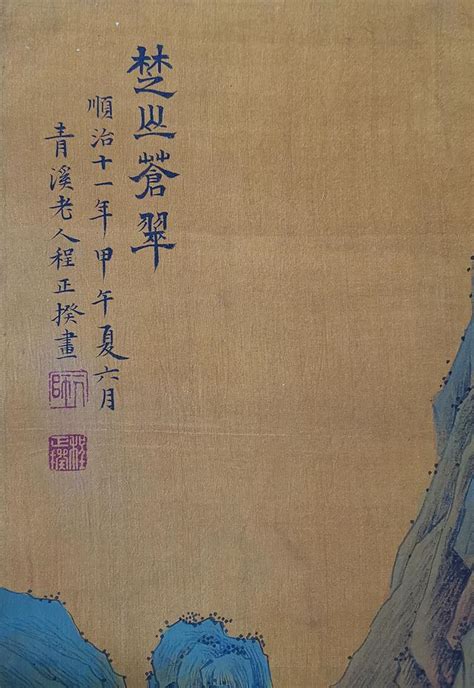 楚山蒼翠
順治十一年甲午夏六月
青溪老人程正揆畫
正揆